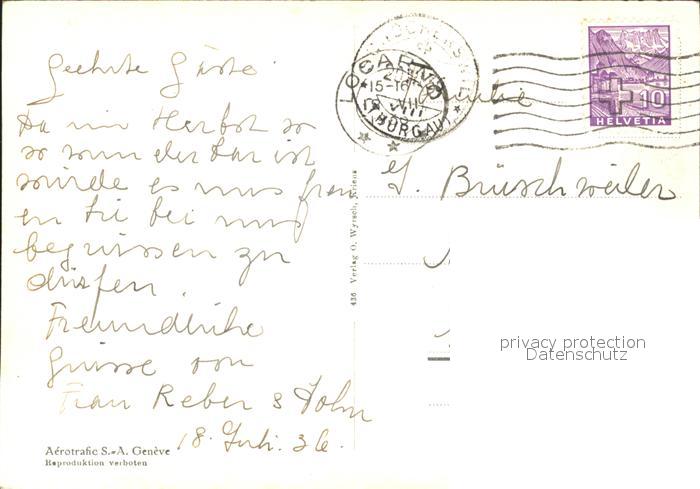 Geehrte Gäste
Da im Herbst so
so wunderbar ist
würde es uns freu
en Sie bei uns
begrüssen zu
dürfen.
Freundliche
Grüsse von
Frau Reber & Sohn
18. Juli. 36.
Aérotrafic S.-A. Genève
Reproduktion verboten
436 Verlag O. Wyrsch, Kriens
LOCARNO
15-16
VII
(THURGAU)
10
HELVETIA
G. Brüschweiler
privacy protection
Datenschutz